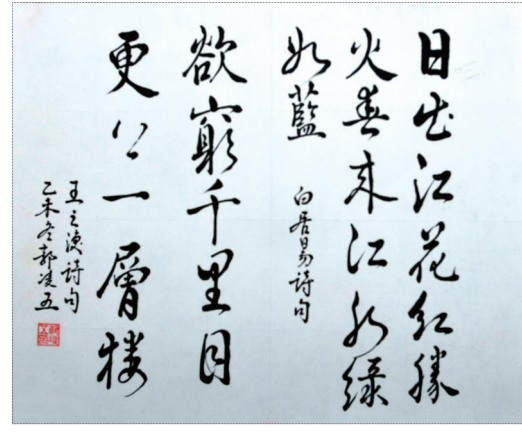 日出江花红勝
火春来江水绿
如藍
白居易詩句
欲窮千里目
更上一層楼
王之渙詩句
乙未冬郭凌五